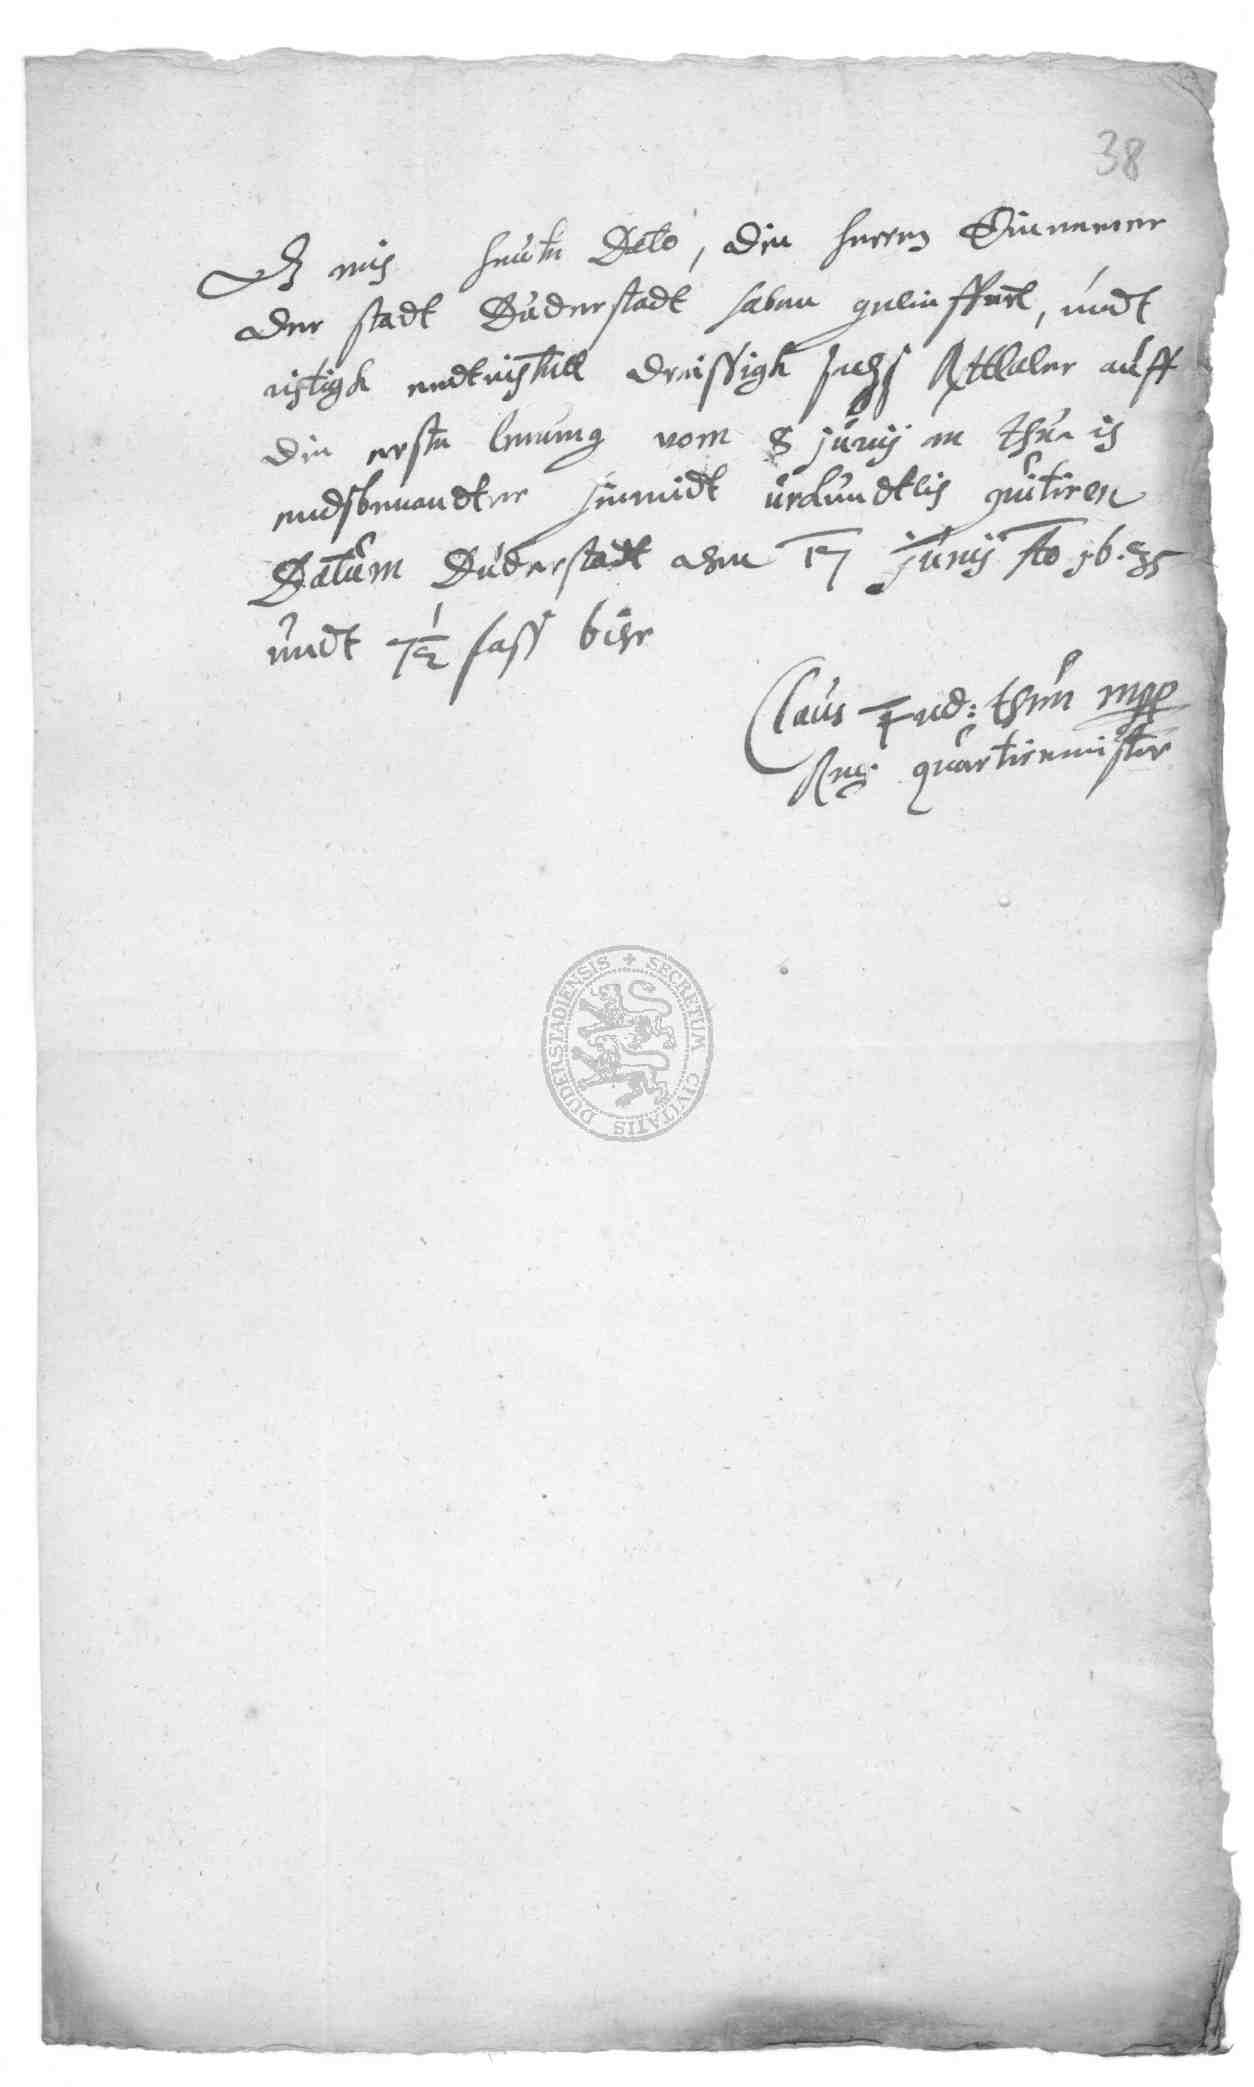 38
Daß mich heute Dato, die herren Einnemer
der stadt Duderstadt haben gelieffert, undt
richtigk endtrichtett dreissigk sechß Rthaler auff
die erste lenung vom 8 junij
endsbenandter hiemidt urkundtlich quitiren
Datum Duderstadt den 17 junij
undt 7 1/2 fass bihr
Claus mpp
Reg. quartirmeister
SECRETUM CIVITATIS DUDERSTADIENSIS